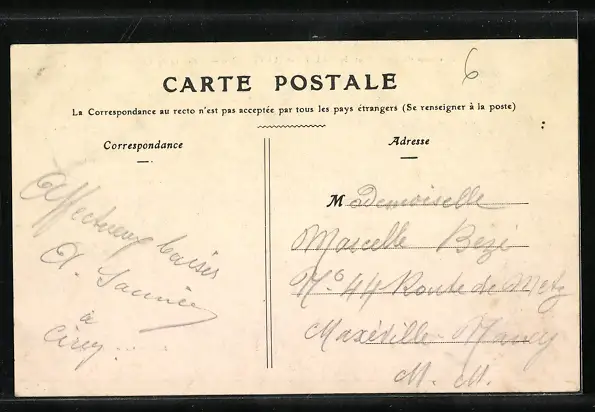 6
CARTE POSTALE
La Correspondance au recto n'est pas acceptée par tous les pays étrangers (Se renseigner à la poste)
Correspondance
Affectueux baisers
A.
à
Cirey...
Adresse
Mademoiselle
Marcelle Bézé
N° 44 Route de Metz
Maxéville-Nancy
M. M.